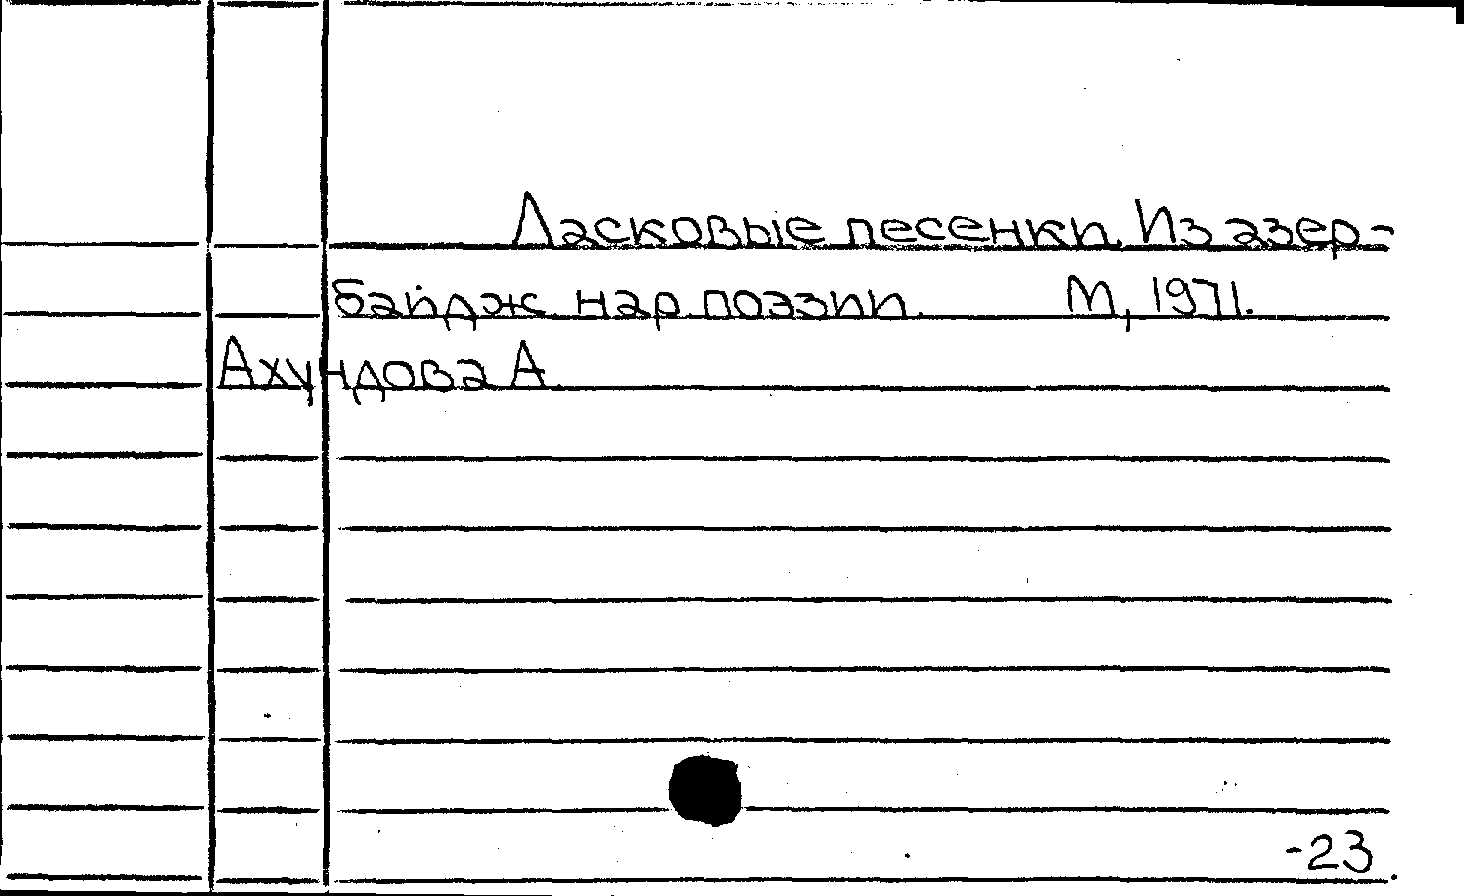 Ласковые песенки. Из азер-
байдж. нар. поэзии. М, 1971.
Ахундова А.
-23